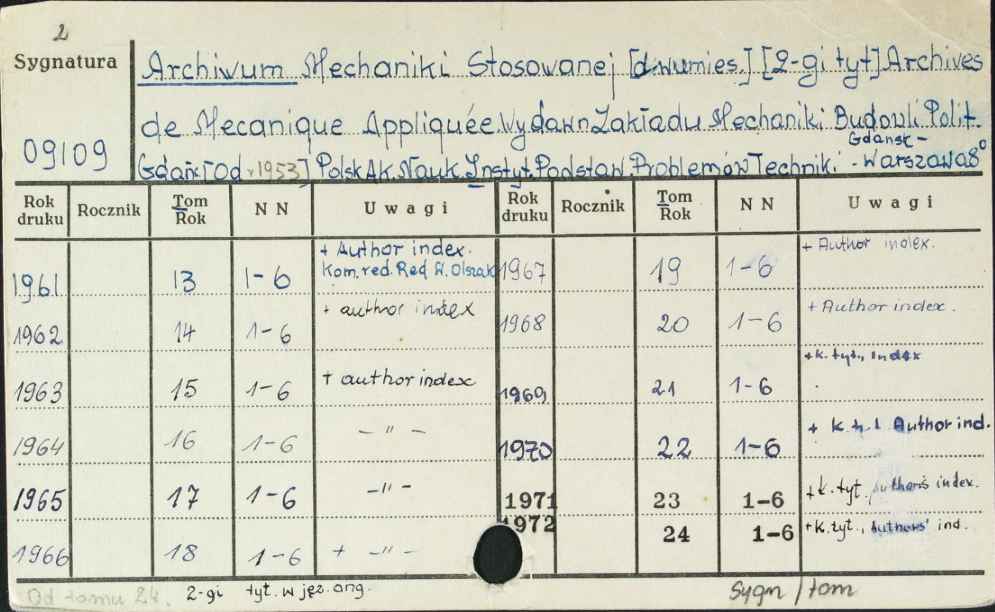 2
Sygnatura
Archiwum Mechaniki Stosowanej [dwumies.] [2-gi tyt] Archives
de Mecanique Appliquée. Wydawn Zakładu Mechaniki Budowli Polit.
09109
Gdańsk-
Gdańs [Od 1953] Polsk Ak. Nauk. Instyt. Podstaw. Problemów Techniki. Warszawa 8°
Rok druku Rocznik Tom Rok N N Uwagi Rok druku Rocznik Tom Rok N N Uwagi
1961 13 1-6 + Author index. Kom. red. Red W. Olszak 1967 19 1-6 + Author index.
1962 14 1-6 + author index 1968 20 1-6 + Author index.
1963 15 1-6 + author index 1969 21 1-6 + k. tyt., index
1964 16 1-6 - " - 1970 22 1-6 + k. Author ind.
1965 17 1-6 -"- 1971 23 1-6 + k. tyt. Authors index.
1972 24 1-6 + k. tyt., Authors' ind.
1966 18 1-6 + -"-
Od tomu 24. 2-gi tyt. w jęz. ang. Sygn / tom